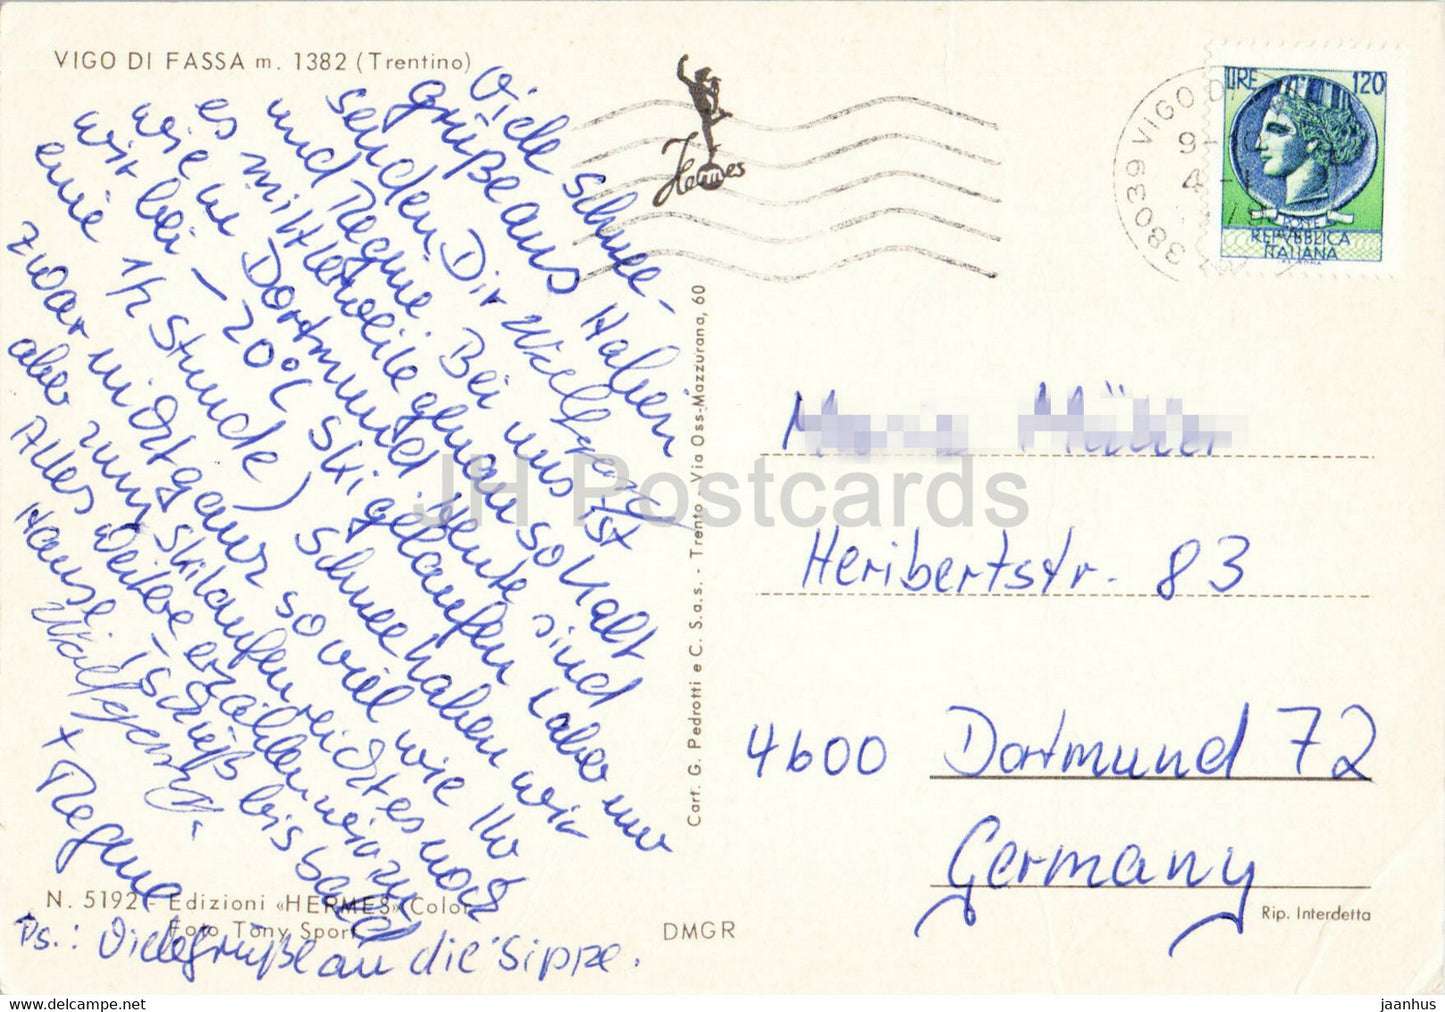 VIGO DI FASSA m. 1382 (Trentino)
Viele Schnee-
grüße aus Italien
senden Dir Wolfgang
und Regine. Bei uns ist
es mittlerweile genau so kalt
wie in Dortmund. Heute sind
wir bei -20°C Ski gelaufen (aber nur
eine 1/2 Stunde) Schnee haben wir
zwar nicht ganz so viel wie Ihr
aber zum Skilaufen reicht es noch
Alles weitere erzählen wir zu
Hause! Tschüß bis bald
Wolfgang
+ Regine
Ps.: Viele Grüße an die Sippe.
N. 5192 - Edizioni «HERMES» Color
Foto Tony Sport
DMGR
Hermes
Cart. G. Pedrotti e C. S.a.s. - Trento - Via Oss-Mazzurana, 60
38039 VIGO DI
LIRE 120
POSTE
REPVBBLICA
ITALIANA
Heribertstr. 83
4600 Dortmund 72
Germany
Rip. Interdetta
JH Postcards
www.delcampe.net
jaanhus